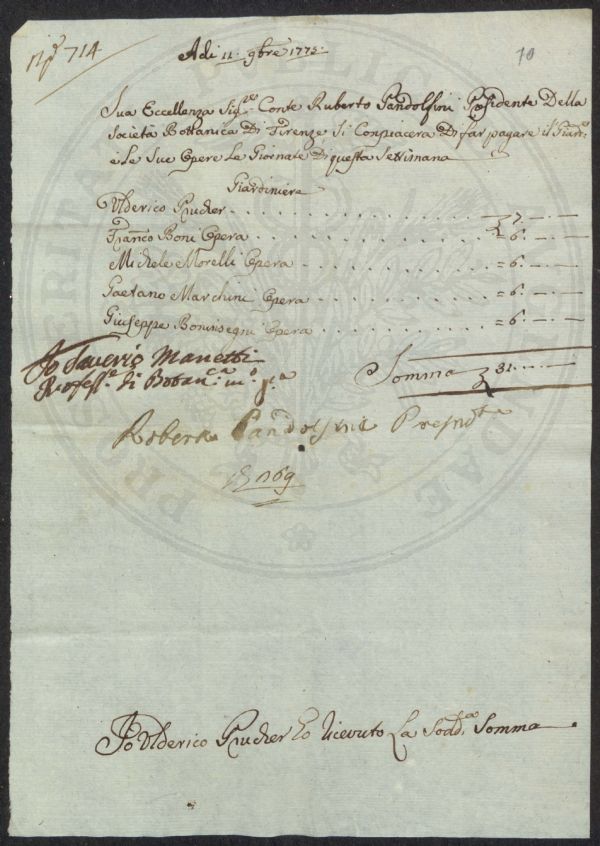 N.º 714
Adi 11. 9bre 1775.
70
Sua Eccellenza Sig:re Conte Ruberto Pandolfini Presidente Della
Società Bottanica Di Firenze Si Compiacera Di far pagare il Giard:e
e Le Sue Opere Le Giornate Di questa Settimana
Giardiniere
Ulderico Prucher 7
Franco Boni Opera = 6.
Michele Morelli Opera = 6.
Gaetano Marchini Opera = 6.
Giuseppe Boninsegni Opera = 6.
Io Saverio Manetti
Profess.e di Botan.ca m.o p.a
Somma 31
Roberto Pandolfini Presid.te
169
Io Ulderico Prucher Ho Ricevuto La Sodd.a Somma